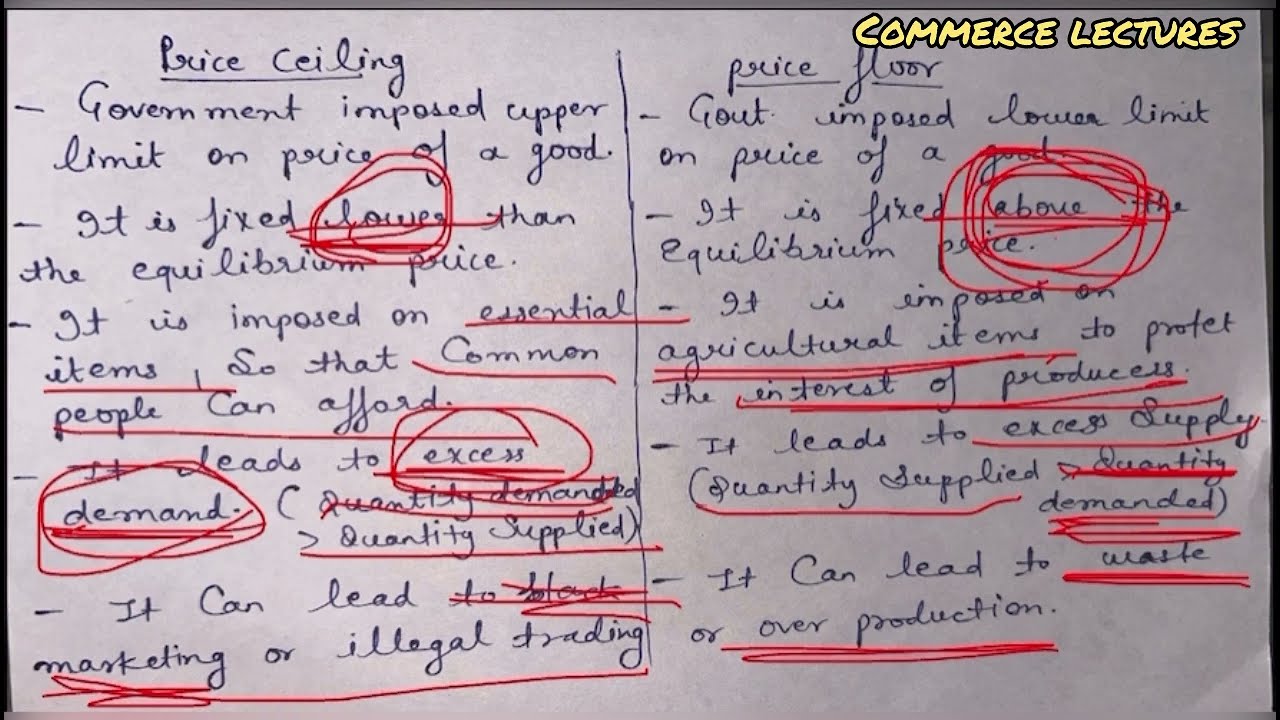 COMMERCE LECTURES
Price Ceiling
- Government imposed upper
limit on price of a good.
- It is fixed lower than
the equilibrium price.
- It is imposed on essential
items, So that Common
people Can afford.
- It leads to excess
demand. (Quantity demanded
> Quantity Supplied)
- It Can lead to black
marketing or illegal trading
price floor
- Govt. imposed lower limit
on price of a good.
- It is fixed above the
Equilibrium price.
- It is imposed on
agricultural items to protet
the interest of producess.
- It leads to excess Supply.
(Quantity Supplied > Quantity
demanded)
- It Can lead to waste
or over production.